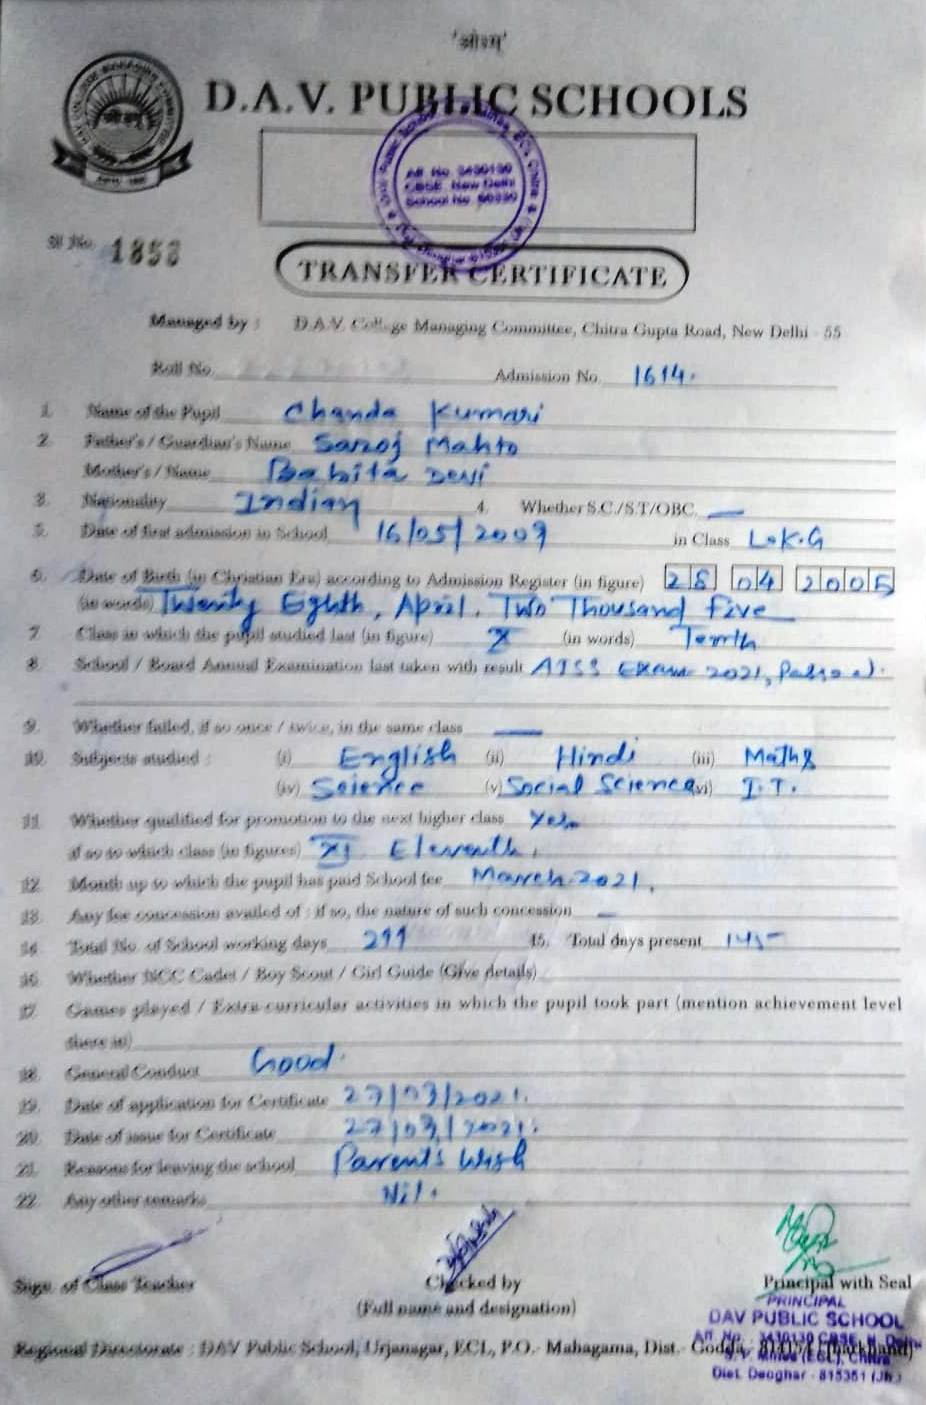 'ओ३म्'
D.A.V. PUBLIC SCHOOLS
Aff. No. 3430130
CBSE, New Delhi
School No.
Sl No. 1853
TRANSFER CERTIFICATE
Managed by : D.A.V. College Managing Committee, Chitra Gupta Road, New Delhi - 55
Roll No. Admission No. 1614.
1. Name of the Pupil Chanda Kumari
2. Father's / Guardian's Name Saroj Mahto
Mother's / Name Babita Devi
3. Nationality Indian 4. Whether S.C./S.T/OBC. —
5. Date of first admission in School 16/05/2009 in Class L.K.G
6. Date of Birth (in Christian Era) according to Admission Register (in figure) 28 04 2005
(in words) Twenty Eghth, April, Two Thousand Five
7. Class in which the pupil studied last (in figure) X (in words) Tenth
8. School / Board Annual Examination last taken with result AISS Exam 2021, Passed.
9. Whether failed, if so once / twice, in the same class —
10. Subjects studied : (i) English (ii) Hindi (iii) Maths
(iv) Science (v) Social Science (vi) I.T.
11. Whether qualified for promotion to the next higher class Yes
if so to which class (in figures) XI Eleventh.
12. Month up to which the pupil has paid School fee March-2021.
13. Any fee concession availed of : if so, the nature of such concession —
14. Total No. of School working days 15. Total days present
16. Whether NCC Cadet / Boy Scout / Girl Guide (Give details)
17. Games played / Extra curricular activities in which the pupil took part (mention achievement level
there in)
18. General Conduct Good.
19. Date of application for Certificate 27/03/2021.
20. Date of issue for Certificate 27/03/2021.
21. Reasons for leaving the school Parent's Wish
22. Any other remarks Nil.
Sign. of Class Teacher Checked by Principal with Seal
(Full name and designation)
PRINCIPAL
DAV PUBLIC SCHOOL
Aff. No. - 3430130 CBSE, N. Delhi
Regional Directorate : DAV Public School, Urjanagar, ECL, P.O.- Mahagama, Dist.- Godda, 814154 (Jharkhand)
S. P. Mines (ECL), Chitra
Dist. Deoghar - 815351 (Jh.)